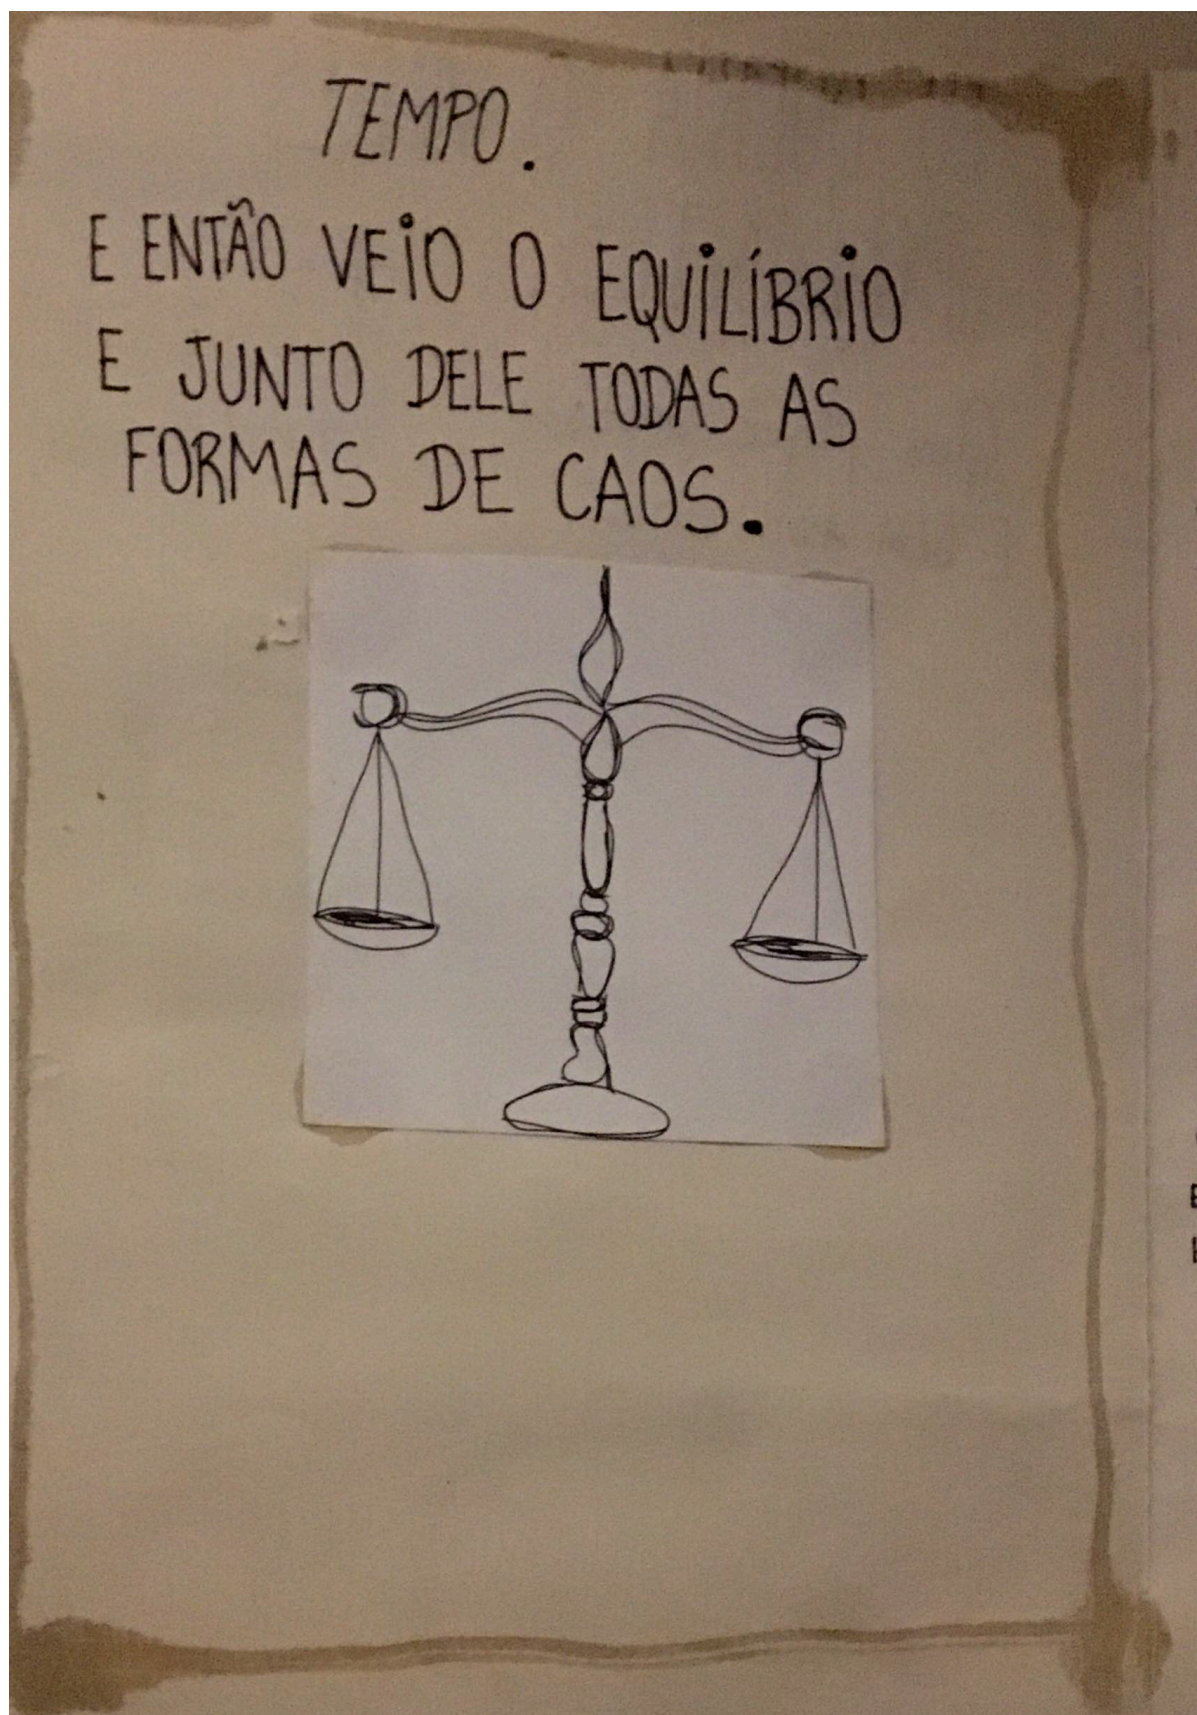 TEMPO.
E ENTÃO VEiO O EQUiLÍBRiO
E JUNTO DELE TODAS AS
FORMAS DE CAOS.